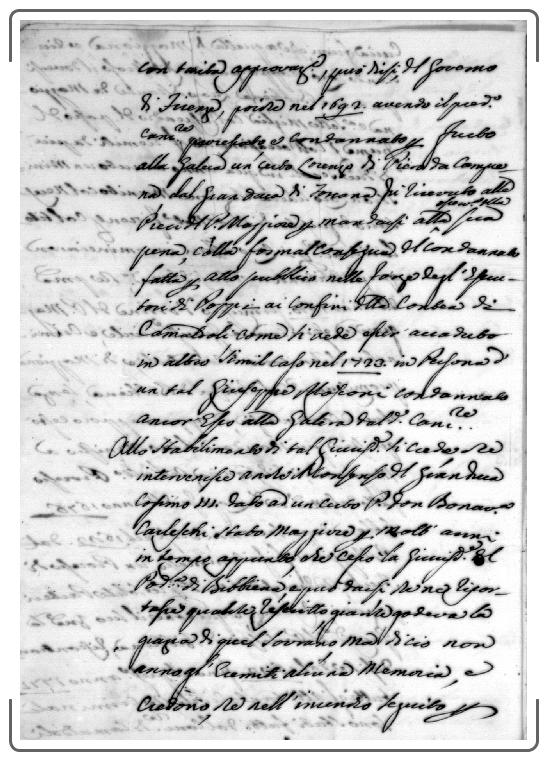 con tacita approvaz.e, può dirsi del Governo
di Firenze, poiche nel 1692 avendo il pred.o
Canc.re processato e condannato per furto
alla Galera un certo Lorenzo di Piero da Campre
na dal Gran Duca di Toscana fu ricevuto alle
Preci del P. Maggiore per mandarsi alla sua
pena, colla formal consegna del condannato
fatta per atto pubblico nelle forze degl'esecu-
tori di Poppi ai confini della Contea di
Camaldoli come si vede esser accaduto
in altro simil caso nel 1723. in Persona d'
un tal Giuseppe condannato
ancor Esso alla Galera dal d.o Canc.re
Allo stabilimento di tal Giurisd.e si crede che
intervenisse anche il Consenso del Gran Duca
Cosimo III. dato ad un certo P. Don Bonav.a
stato Maggiore per molti anni
in tempo appunto che cessò la Giurisd.e del
Pod.tà di Bibbiena e può darsi che ne ripor-
tasse qualche rescritto giacche godeva la
grazia di quel Sovrano ma di cio non
anno gl'Eremiti alcuna Memoria, e
credono, che nell'incendio seguito